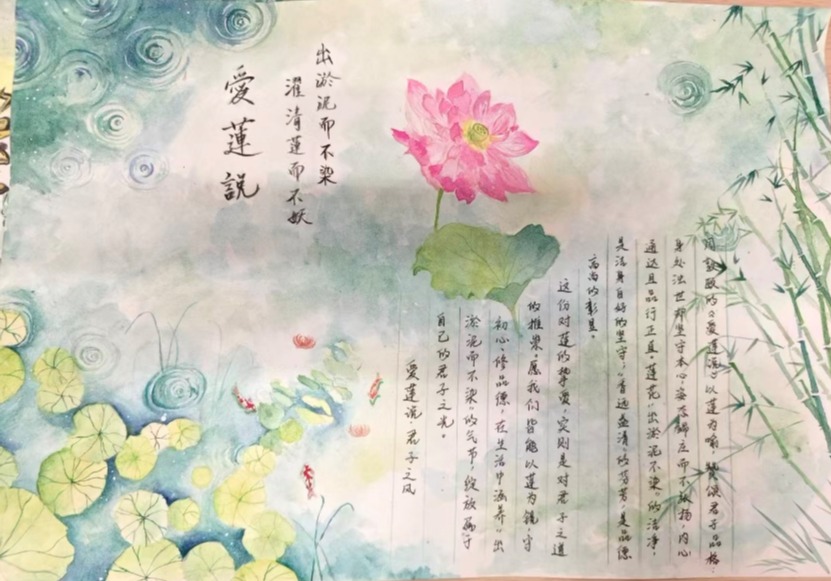 出淤泥而不染
濯清蓮而不妖
愛蓮說
周敦颐的《爱莲说》以莲为喻，赞颂君子品格：
身处浊世却坚守本心，姿态端庄而不张扬，内心
通达且品行正直。莲花“出淤泥不染”的洁净，
是洁身自好的坚守；“香远益清”的芬芳，是品德
高尚的彰显。
这份对莲的挚爱，实则是对君子之道
的推崇。愿我们皆能以莲为镜，守
初心、修品德，在生活中涵养“出
淤泥而不染”的气节，绽放属于
自己的君子之光。
爱莲说·君子之风